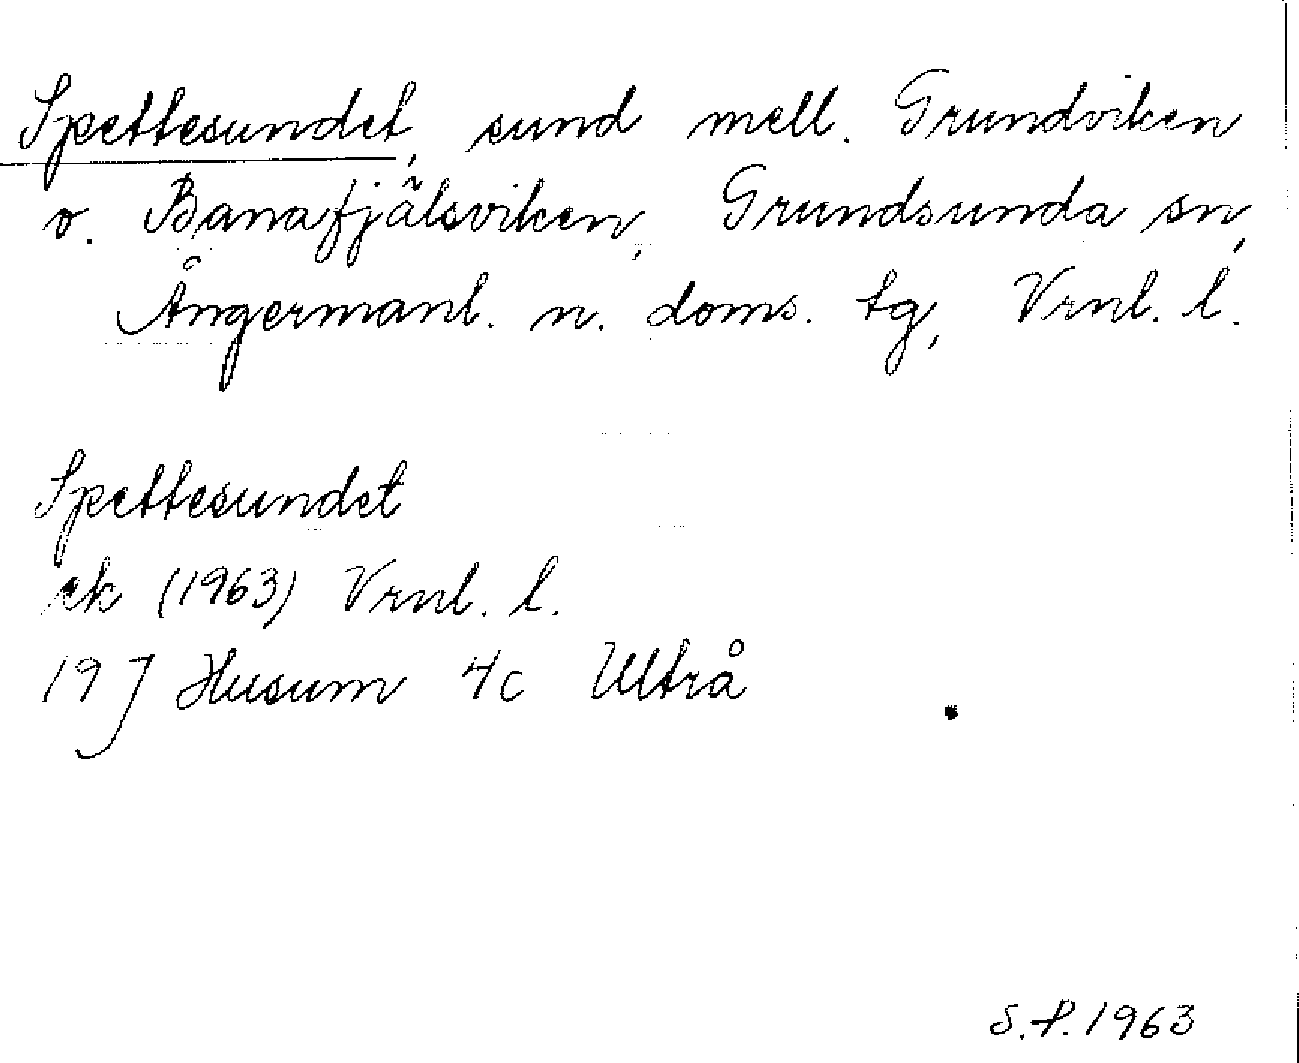 Spettesundet, sund mell. Grundviken
o. Banafjälsviken, Grundsunda sn,
Ångermanl. n. doms. tg, Vrnl. l.
Spettesundet
ek (1963) Vrnl. l.
19 J Husum 4c Ultrå
S.P. 1963